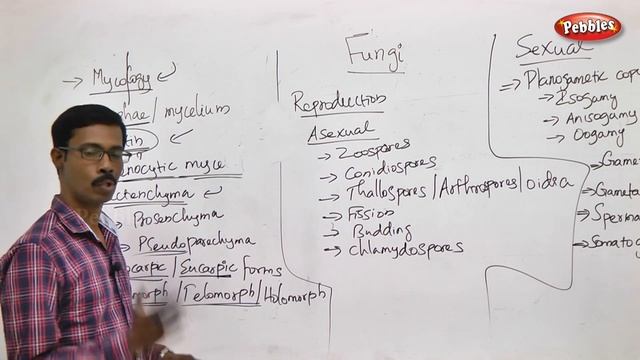 Pebbles
Fungi
→ Mycology
phae / mycelium
nocytic myce
ctenchyma
→ Prosenchyma
→ Pseudoparechyma
ocarpic / Eucarpic forms
morph / Telomorph / Holomorph
Reproduction
Asexual
→ Zoospores
→ Conidiospores
→ Thallospores / Arthrospores / oidia
→ Fission
→ Budding
→ chlamydospores
Sexual
⇒ Planogametic copu
→ Isogamy
→ Anisogamy
→ Oogamy
⇒ Gamet
⇒ Gameta
⇒ Sperma
⇒ Somatog